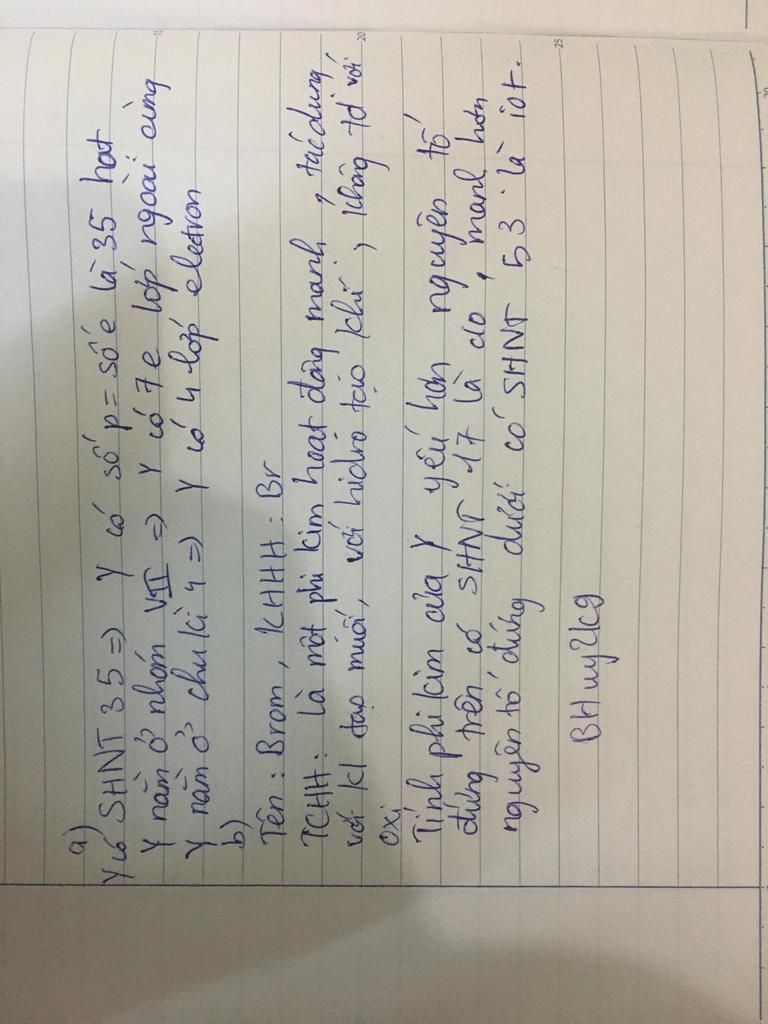 a)
Y có SHNT 35 => Y có số p = số e là 35 hạt
Y nằm ở nhóm VII => Y có 7e lớp ngoài cùng
Y nằm ở chu kì 4 => Y có 4 lớp electron
b)
Tên : Brom , KHHH : Br
TCHH : là một phi kim hoạt động mạnh , tác dụng
với kl tạo muối, với hidro tạo khí , không td với
oxi
Tính phi kim của Y yếu hơn nguyên tố
đứng trên có SHNT 17 là clo , mạnh hơn
nguyên tố đứng dưới có SHNT 53 là iot.
BHuy2kg
15
20
25